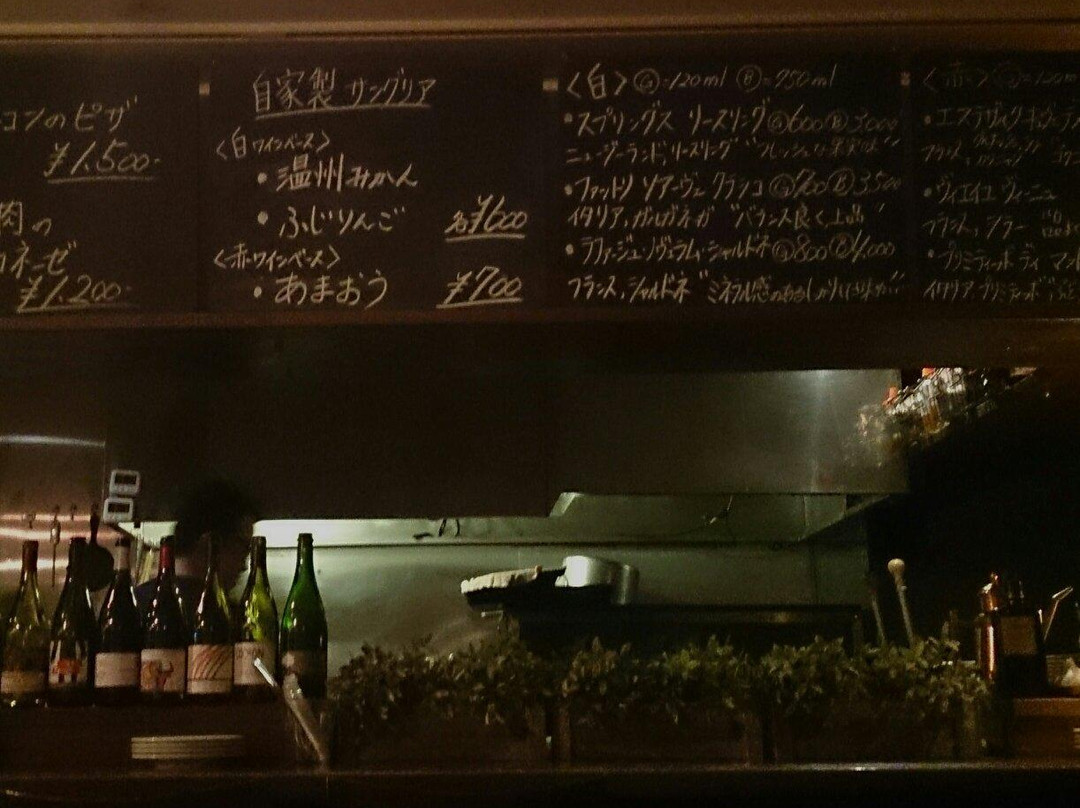 コンのピザ
¥1,500-
肉の
ネーゼ
¥1,200-
自家製 サングリア
〈白ワインベース〉
・温州みかん
・ふじりんご 各¥600
〈赤ワインベース〉
・あまおう ¥700
〈白〉Ⓖ=120ml Ⓑ=750ml
・スプリングス リースリング Ⓖ600 Ⓑ3,000
ニュージーランド,リースリング "フレッシュな果実味"
・ファットリ ソアーヴェ クラシコ Ⓖ700 Ⓑ3,500
イタリア,ガルガネガ "バランス良く上品"
・ラファージュ・ノヴェラム・シャルドネ Ⓖ800 Ⓑ4,000
フランス,シャルドネ "ミネラル感のあるしっかりした味わい"
〈赤〉Ⓖ=120m
・ヴィエイユ ヴィーニュ
・プリミティーボ ディ マン
イタリア,プリミティーボ